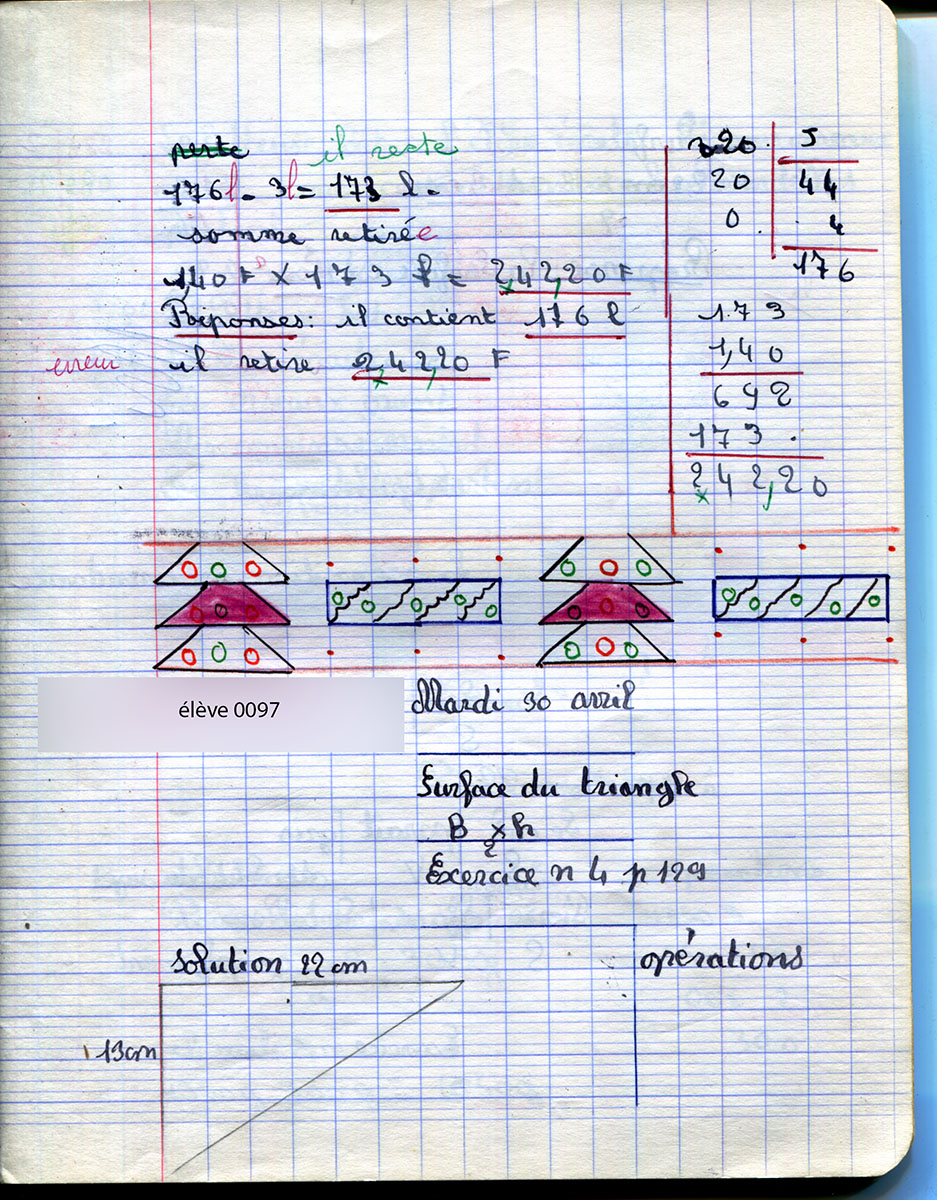 perte il reste
176l - 3l = 173 l.
somme retirée
1,40 F X 173 l = 242,20 F
Réponses: il contient 176 l
erreur il retire 242,20 F
220 5
20 44
0 4
176
173
1,40
692
173 .
242,20
élève 0097
Mardi 30 avril
Surface du triangle
B x h
2
Exercice n 4 p 129
solution 22 cm
opérations
13cm